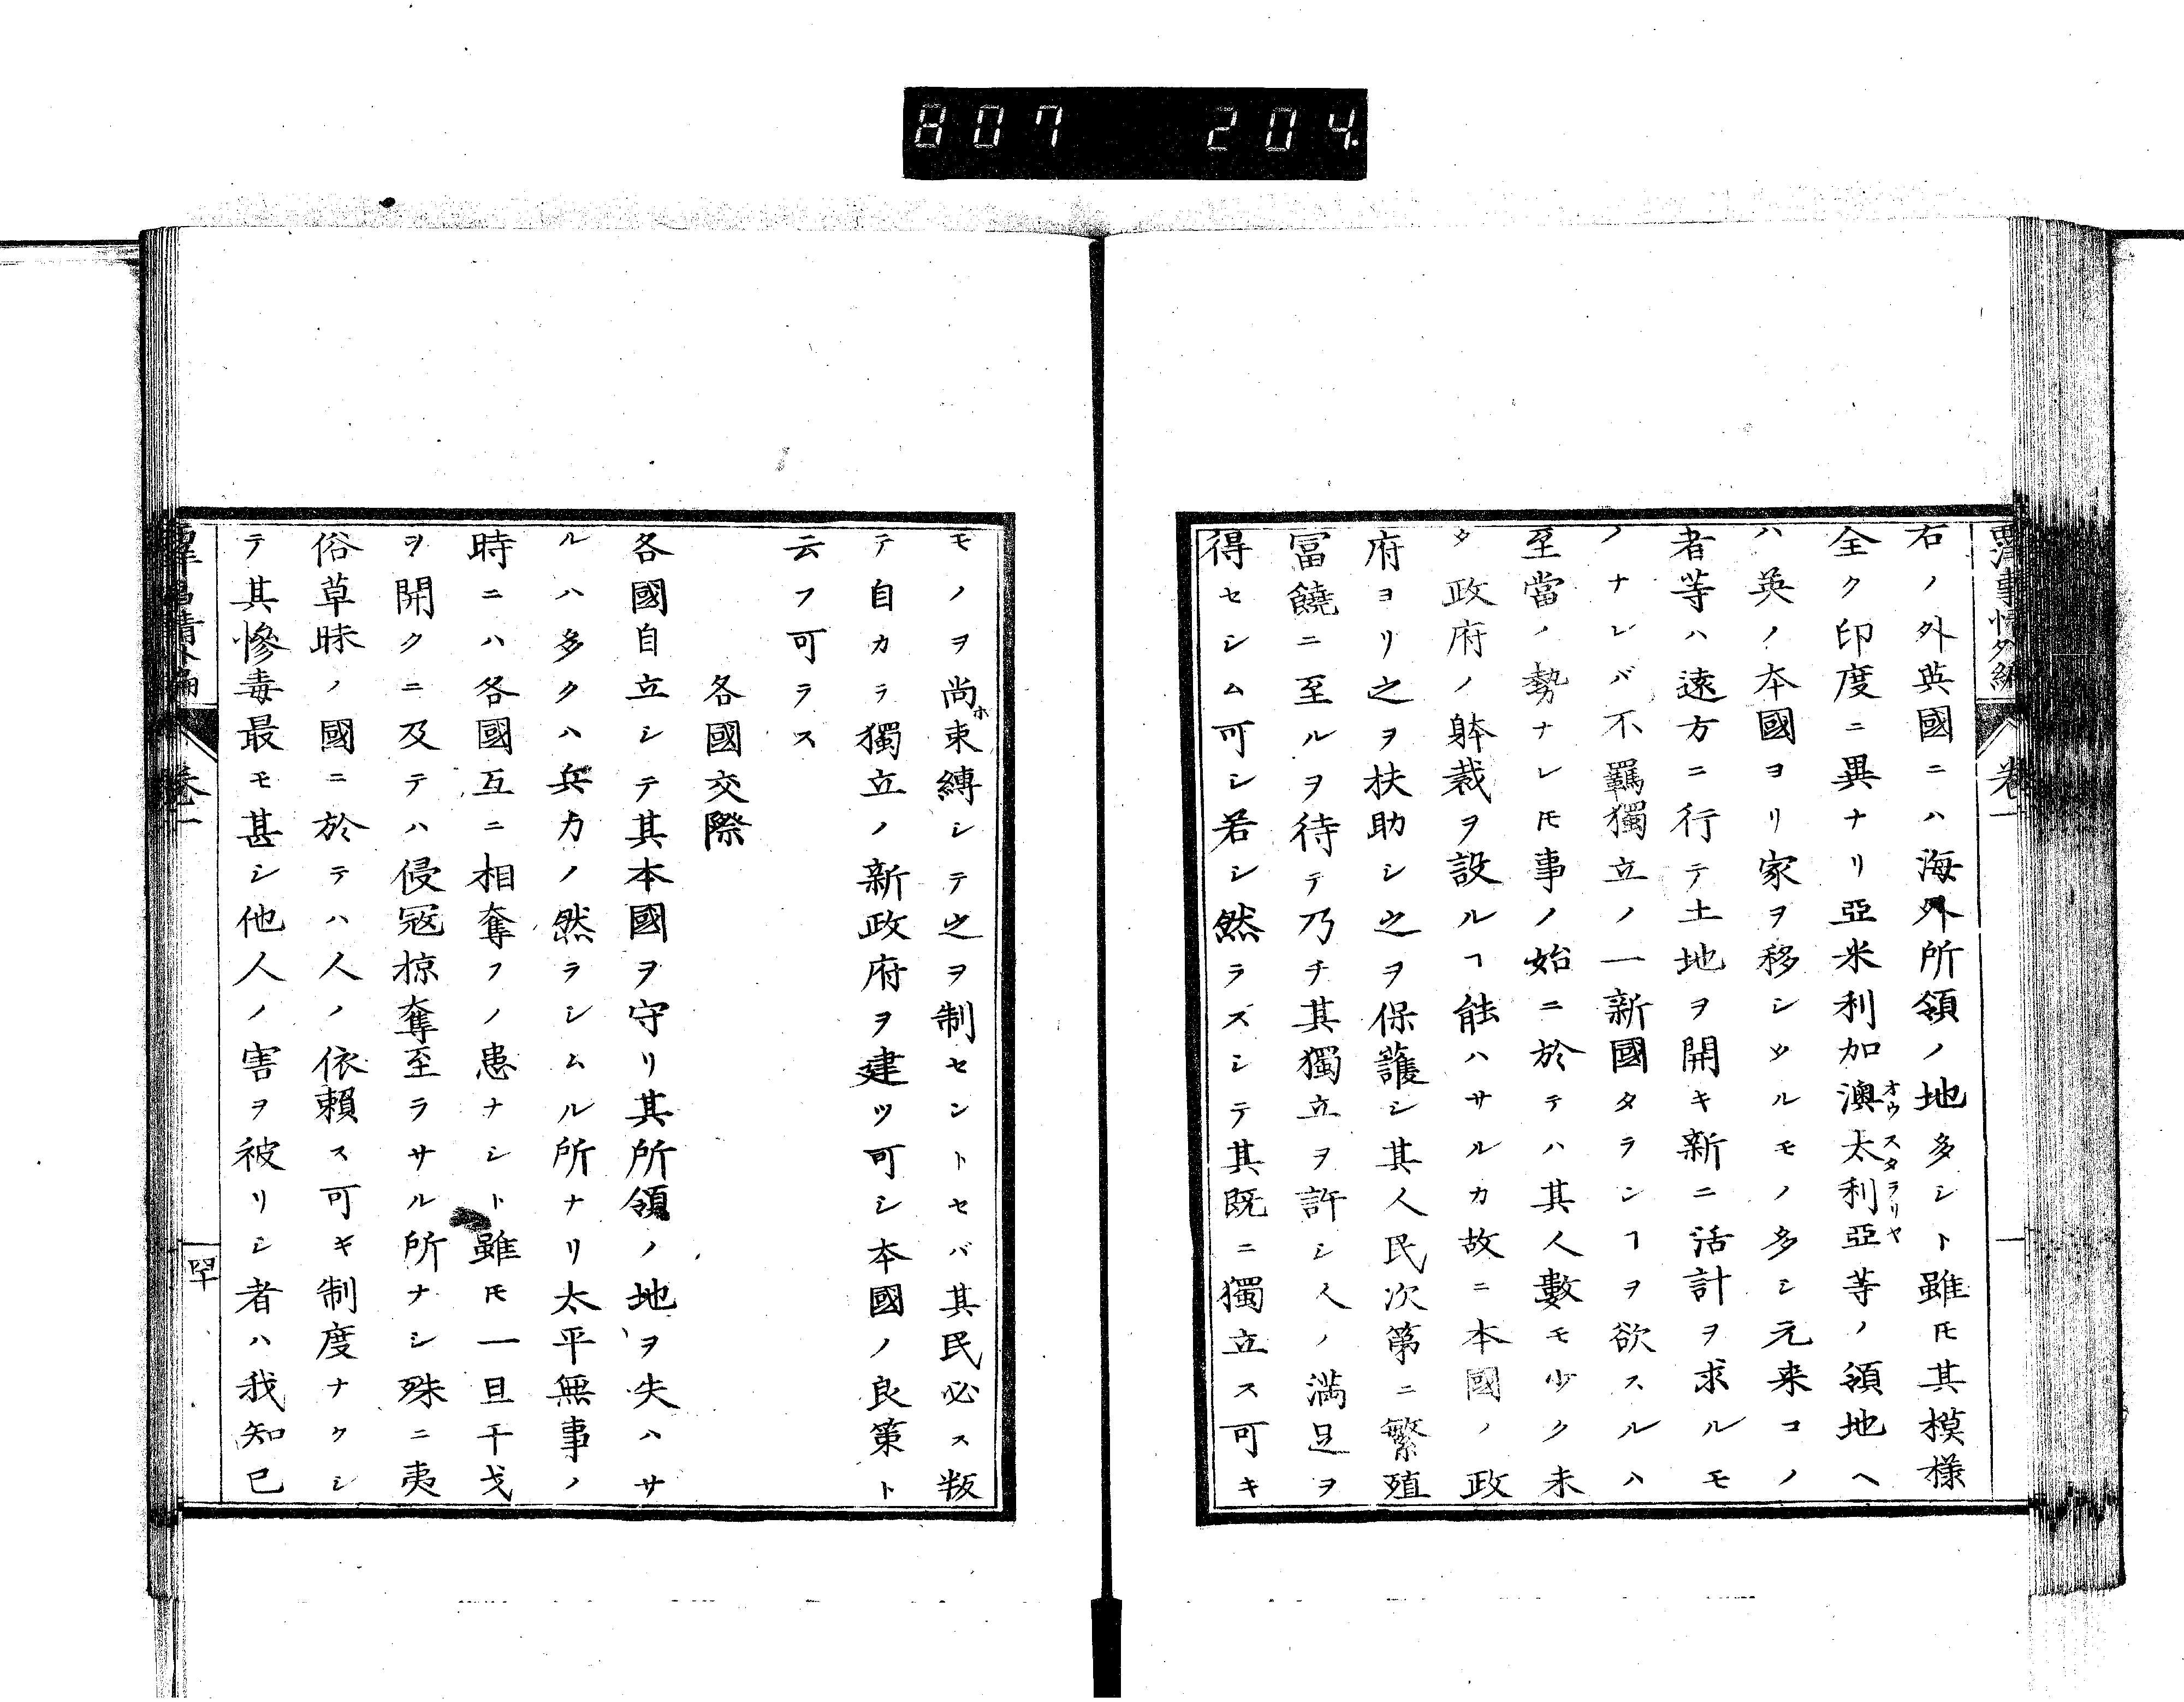 807 204
西洋事情外編 卷一
右ノ外英國ニハ海外所領ノ地多シト雖𪜈其模樣
全ク印度ニ異ナリ亞米利加澳太利亞等ノ領地ヘ
オウスタラリヤ
ハ英ノ本國ヨリ家ヲ移シタルモノ多シ元来コノ
者等ハ遠方ニ行テ土地ヲ開キ新ニ活計ヲ求ルモ
ノナレバ不羈獨立ノ一新國タランヿヲ欲スルハ
至當ノ勢ナレ𪜈事ノ始ニ於テハ其人數モ少ク未
タ政府ノ躰裁ヲ設ルヿ能ハサルカ故ニ本國ノ政
府ヨリ之ヲ扶助シ之ヲ保護シ其人民次第ニ繁殖
富饒ニ至ルヲ待テ乃チ其獨立ヲ許シ人ノ満足ヲ
得セシム可シ若シ然ラスシテ其既ニ獨立ス可キ
モノヲ尚ホ束縛シテ之ヲ制セントセバ其民必ス叛
テ自カラ獨立ノ新政府ヲ建ツ可シ本國ノ良策ト
云フ可ラス
各國交際
各國自立シテ其本國ヲ守リ其所領ノ地ヲ失ハサ
ルハ多クハ兵力ノ然ラシムル所ナリ太平無事ノ
時ニハ各國互ニ相奪フノ患ナシト雖𪜈一旦干戈
ヲ開クニ及テハ侵冦掠奪至ラサル所ナシ殊ニ夷
俗草昧ノ國ニ於テハ人ノ依頼ス可キ制度ナクシ
テ其慘毒最モ甚シ他人ノ害ヲ被リシ者ハ我知己
卷一